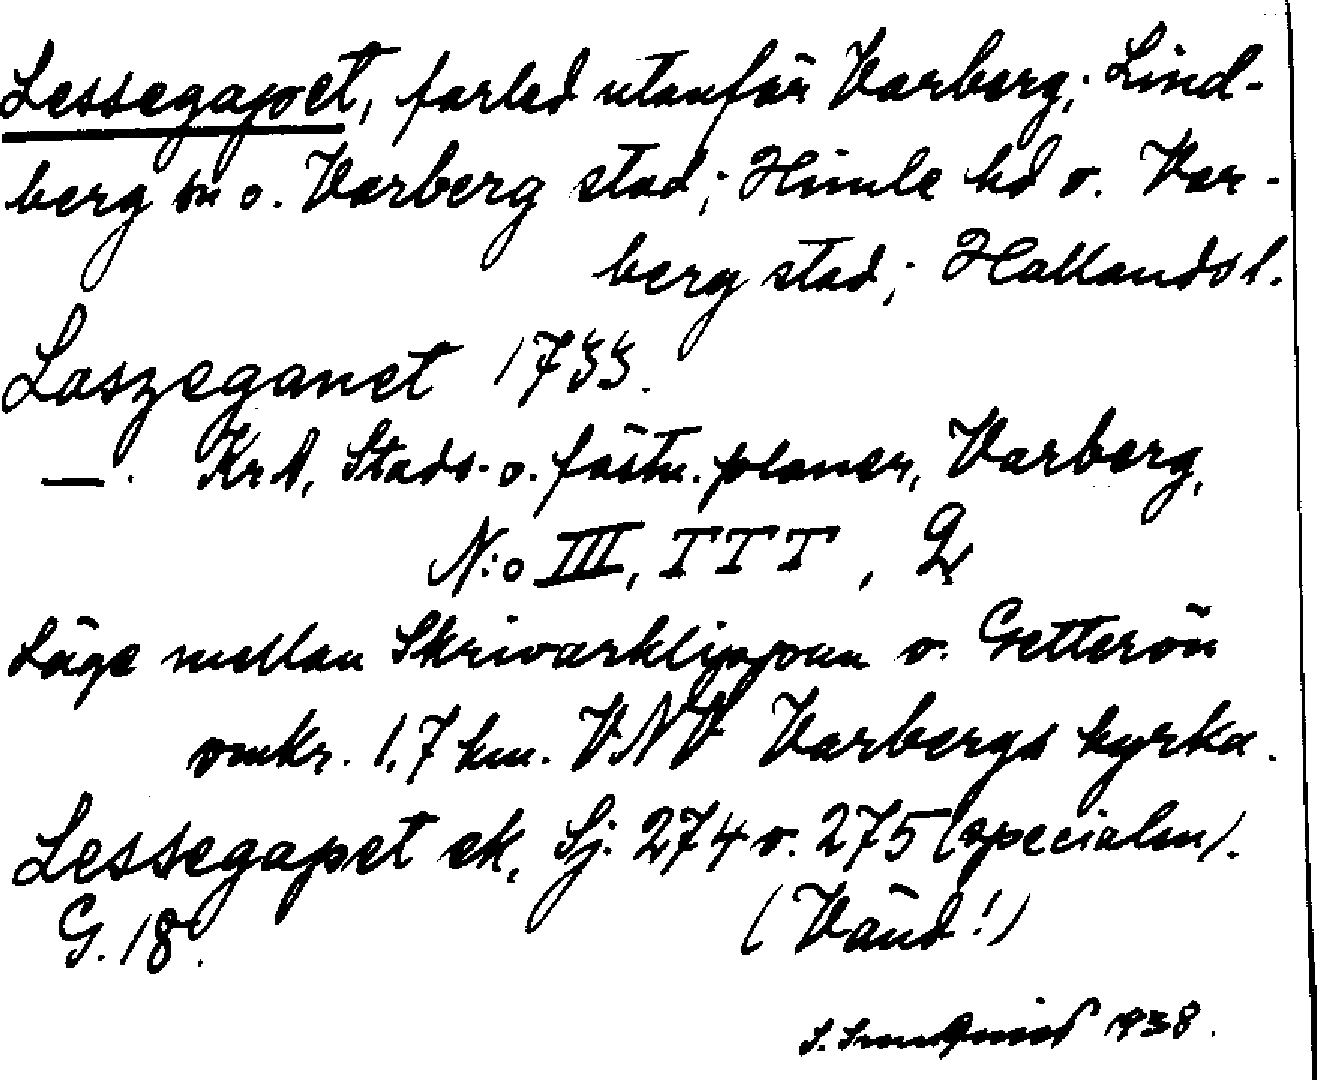 Lessegapet, farled utanför Varberg; Lind-
berg sn o. Varberg stad; Himle hd o. Var-
berg stad; Hallands l.
Laszeganet 1733.
—. KrA, Stads- o. fästn. planer, Varberg,
N:o III, TTT, 2
Läge mellan Skrivarklippan o. Getterön
omkr. 1,7 km. VNV Varbergs kyrka.
Lessegapet ek, Sj. 274 o. 275 (specialen).
G. 18.
(Vänd!)
S. 1938.